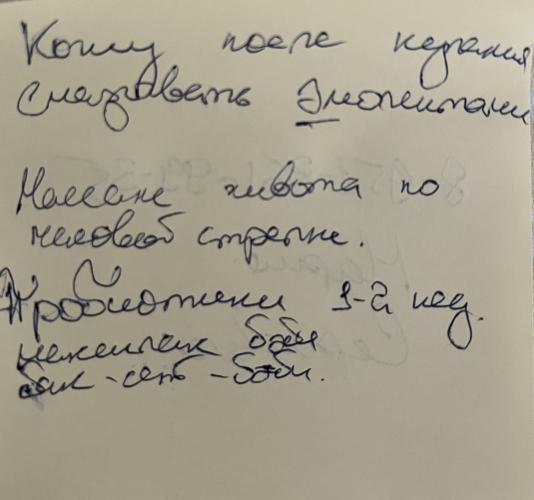 Кожу после купания
смазывать Эмолентами
Массаж живота по
часовой стрелке.
Пробиотики 1-2 нед.
максилак бэби
бак-сет-бэби.